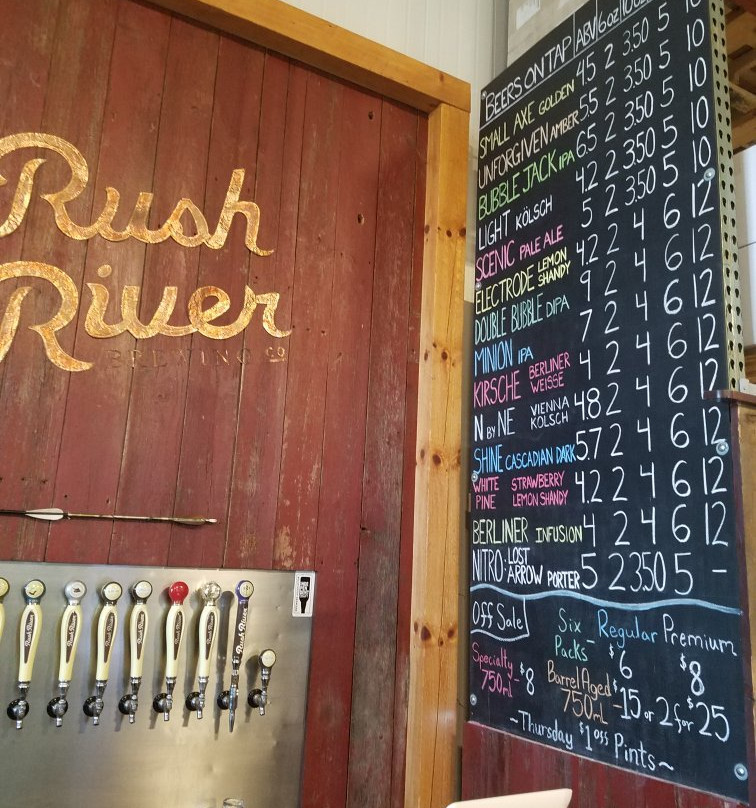 Rush
River
BREWING CO
BEERS ON TAP ABV 6oz 10oz
SMALL AXE GOLDEN 4.5 2 3.50 5 10
UNFORGIVEN AMBER 5.5 2 3.50 5 10
BUBBLE JACK IPA 6.5 2 3.50 5 10
LIGHT KÖLSCH 4.2 2 3.50 5 10
SCENIC PALE ALE 5 2 3.50 5 10
ELECTRODE LEMON SHANDY 4.2 2 4 6 12
DOUBLE BUBBLE DIPA 9 2 4 6 12
MINION IPA 7 2 4 6 12
KIRSCHE BERLINER WEISSE 4 2 4 6 12
N BY NE VIENNA KOLSCH 4.8 2 4 6 12
SHINE CASCADIAN DARK 5.7 2 4 6 12
WHITE PINE STRAWBERRY LEMON SHANDY 4.2 2 4 6 12
BERLINER INFUSION 4 2 4 6 12
NITRO: LOST ARROW PORTER 5 2 3.50 5 -
Off Sale
Six Packs - Regular $6 Premium $8
Specialty 750mL - $8
Barrel Aged 750mL - $15 or 2 for $25
~Thursday $1 off Pints~
Rush River